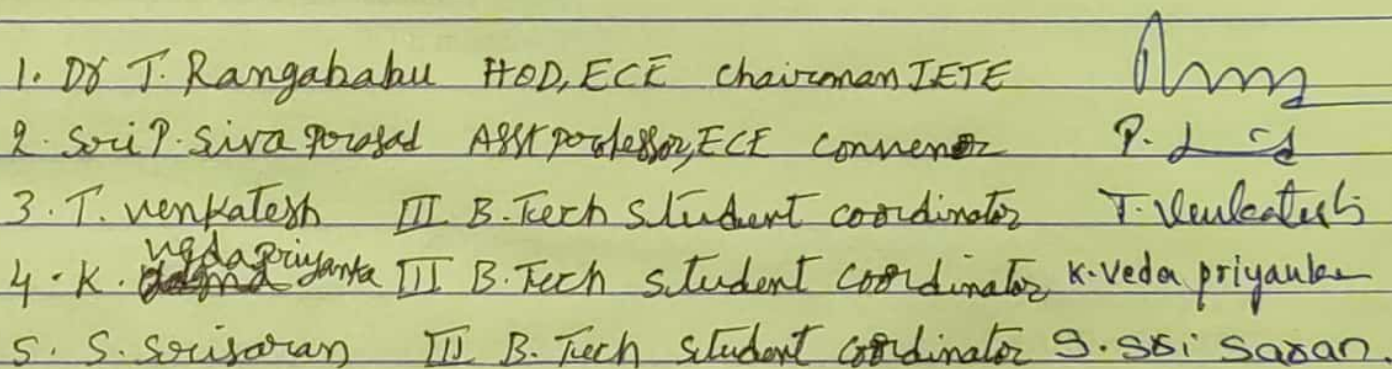 1. Dr T. Rangababu HOD, ECE Chairman IETE
2. Sri P. Siva Prasad Asst professor, ECE convenor P.
3. T. Venkatesh III B.Tech student coordinator T. Venkatesh
4. K. vedapriyanka III B.Tech student coordinator K. Veda priyanka
5. S. Srisaran III B.Tech student coordinator S. Sri Saran.